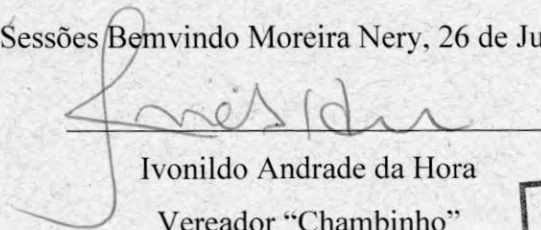 Sessões Bemvindo Moreira Nery, 26 de Ju
Ivonildo Andrade da Hora
Vereador “Chambinho”